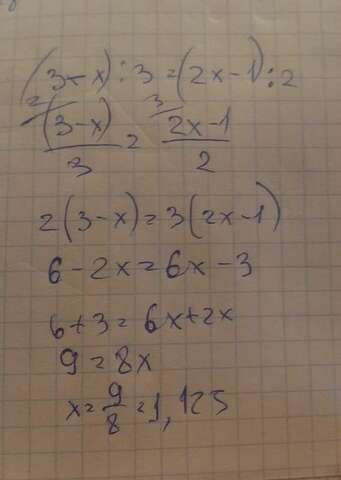 (3-x):3=(2x-1):2
2 3
(3-x)/3 = (2x-1)/2
2(3-x)=3(2x-1)
6-2x=6x-3
6+3=6x+2x
9=8x
x=9/8=1,125